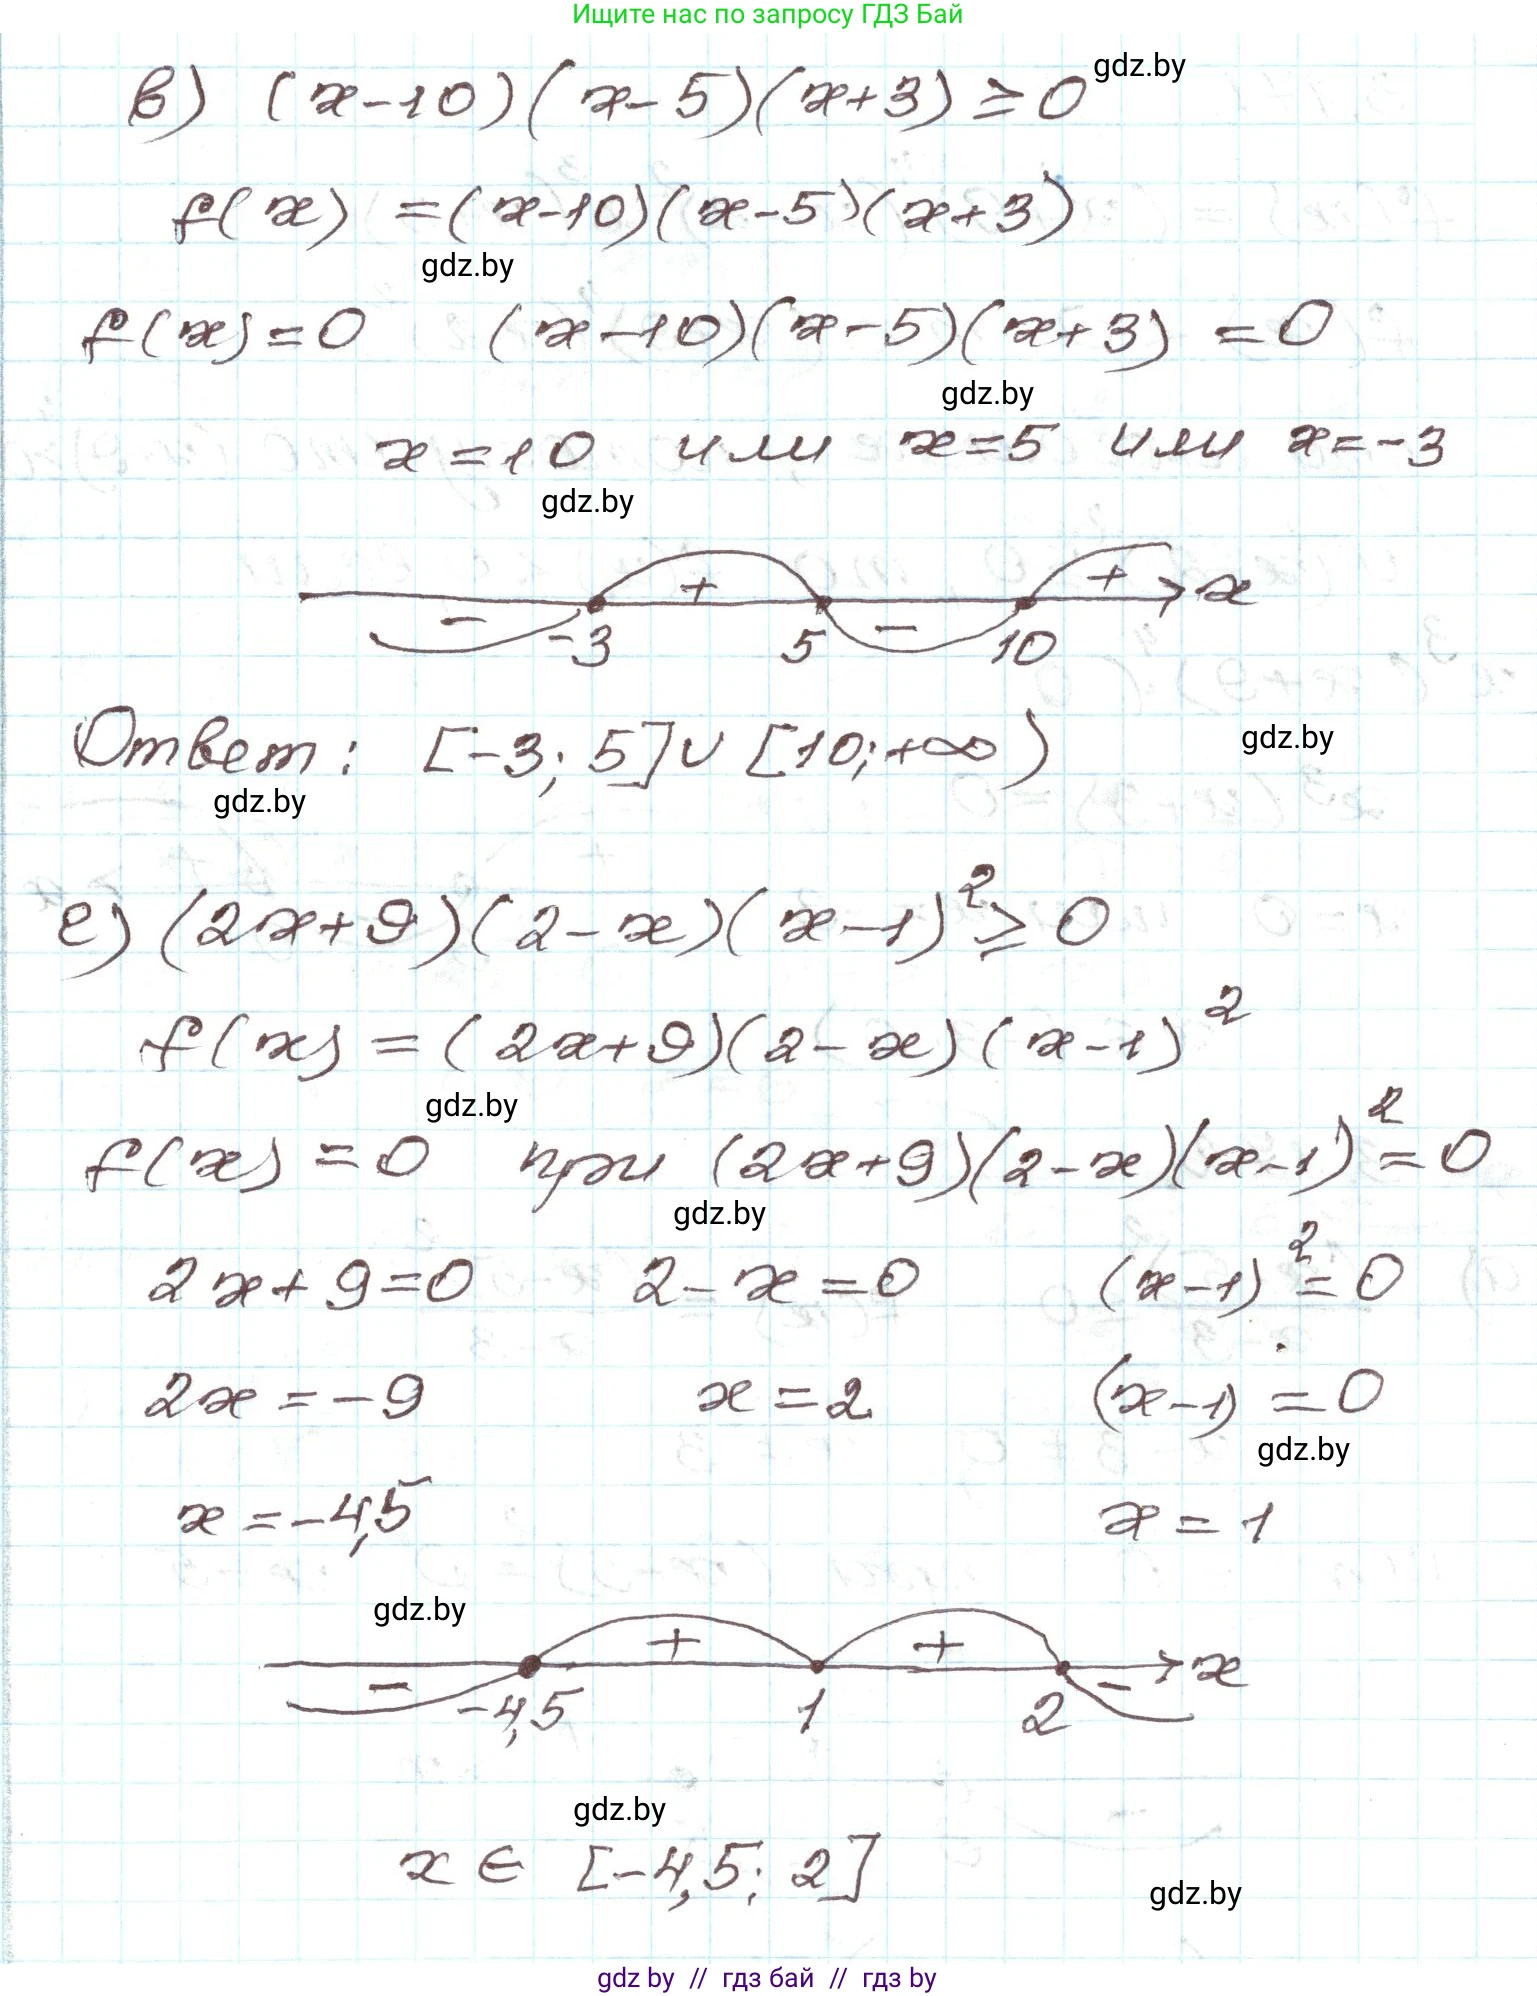 Ищите нас по запросу ГДЗ Бай
в) (x-10)(x-5)(x+3) ≥ 0
gdz.by
f(x) = (x-10)(x-5)(x+3)
gdz.by
f(x) = 0 (x-10)(x-5)(x+3) = 0
gdz.by
x = 10 или x = 5 или x = -3
gdz.by
+ + x
- -3 5 - 10
Ответ: [-3; 5] ∪ [10; +∞)
gdz.by
gdz.by
е) (2x+9)(2-x)(x-1)² ≥ 0
f(x) = (2x+9)(2-x)(x-1)²
gdz.by
f(x) = 0 при (2x+9)(2-x)(x-1)² = 0
gdz.by
2x+9=0 2-x=0 (x-1)²=0
2x = -9 x = 2 (x-1) = 0
gdz.by
x = -4,5 x = 1
gdz.by
+ + x
- -4,5 1 2 -
gdz.by
x ∈ [-4,5; 2]
gdz.by
gdz by // гдз бай // гдз by